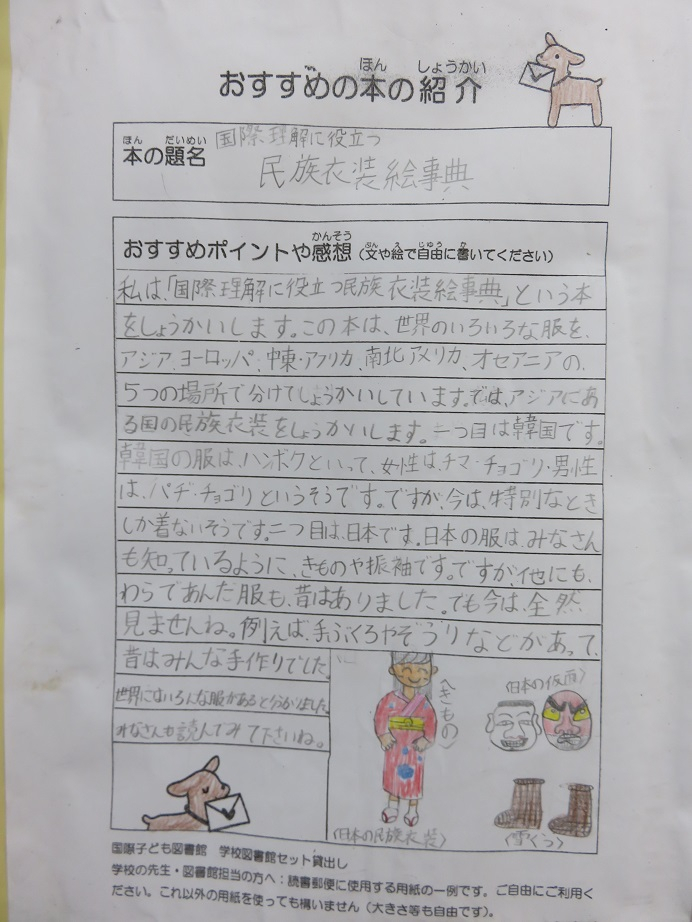 ほん しょうかい
おすすめの本の紹介
ほん だいめい
本の題名
国際理解に役立つ
民族衣装絵事典
かんそう ぶん え じゆう か
おすすめポイントや感想(文や絵で自由に書いてください)
私は、「国際理解に役立つ民族衣装絵事典」という本
をしょうかいします。この本は、世界のいろいろな服を、
アジア、ヨーロッパ、中東・アフリカ、南北アメリカ、オセアニアの、
5つの場所で分けてしょうかいしています。では、アジアにあ
る国の民族衣装をしょうかいします。一つ目は韓国です。
韓国の服は、ハンボクといって、女性は、チマ・チョゴリ・男性
は、パヂ・チョゴリというそうです。ですが、今は、特別なとき
しか着ないそうです。二つ目は、日本です。日本の服は、みなさん
も知っているように、きものや振袖です。ですが、他にも、
わらであんだ服も、昔はありました。でも今は、全然
見ませんね。例えば、手ぶくろやぞうりなどがあって、
昔はみんな手作りでした。
世界にはいろんな服があると分かりました。
みなさんも読んでみて下さいね。
〈きもの〉
〈日本の仮面〉
〈日本の民族衣装〉
〈雪ぐつ〉
国際子ども図書館 学校図書館セット貸出し
学校の先生・図書館担当の方へ:読書郵便に使用する用紙の一例です。ご自由にご利用く
ださい。これ以外の用紙を使っても構いません(大きさ等も自由です)。